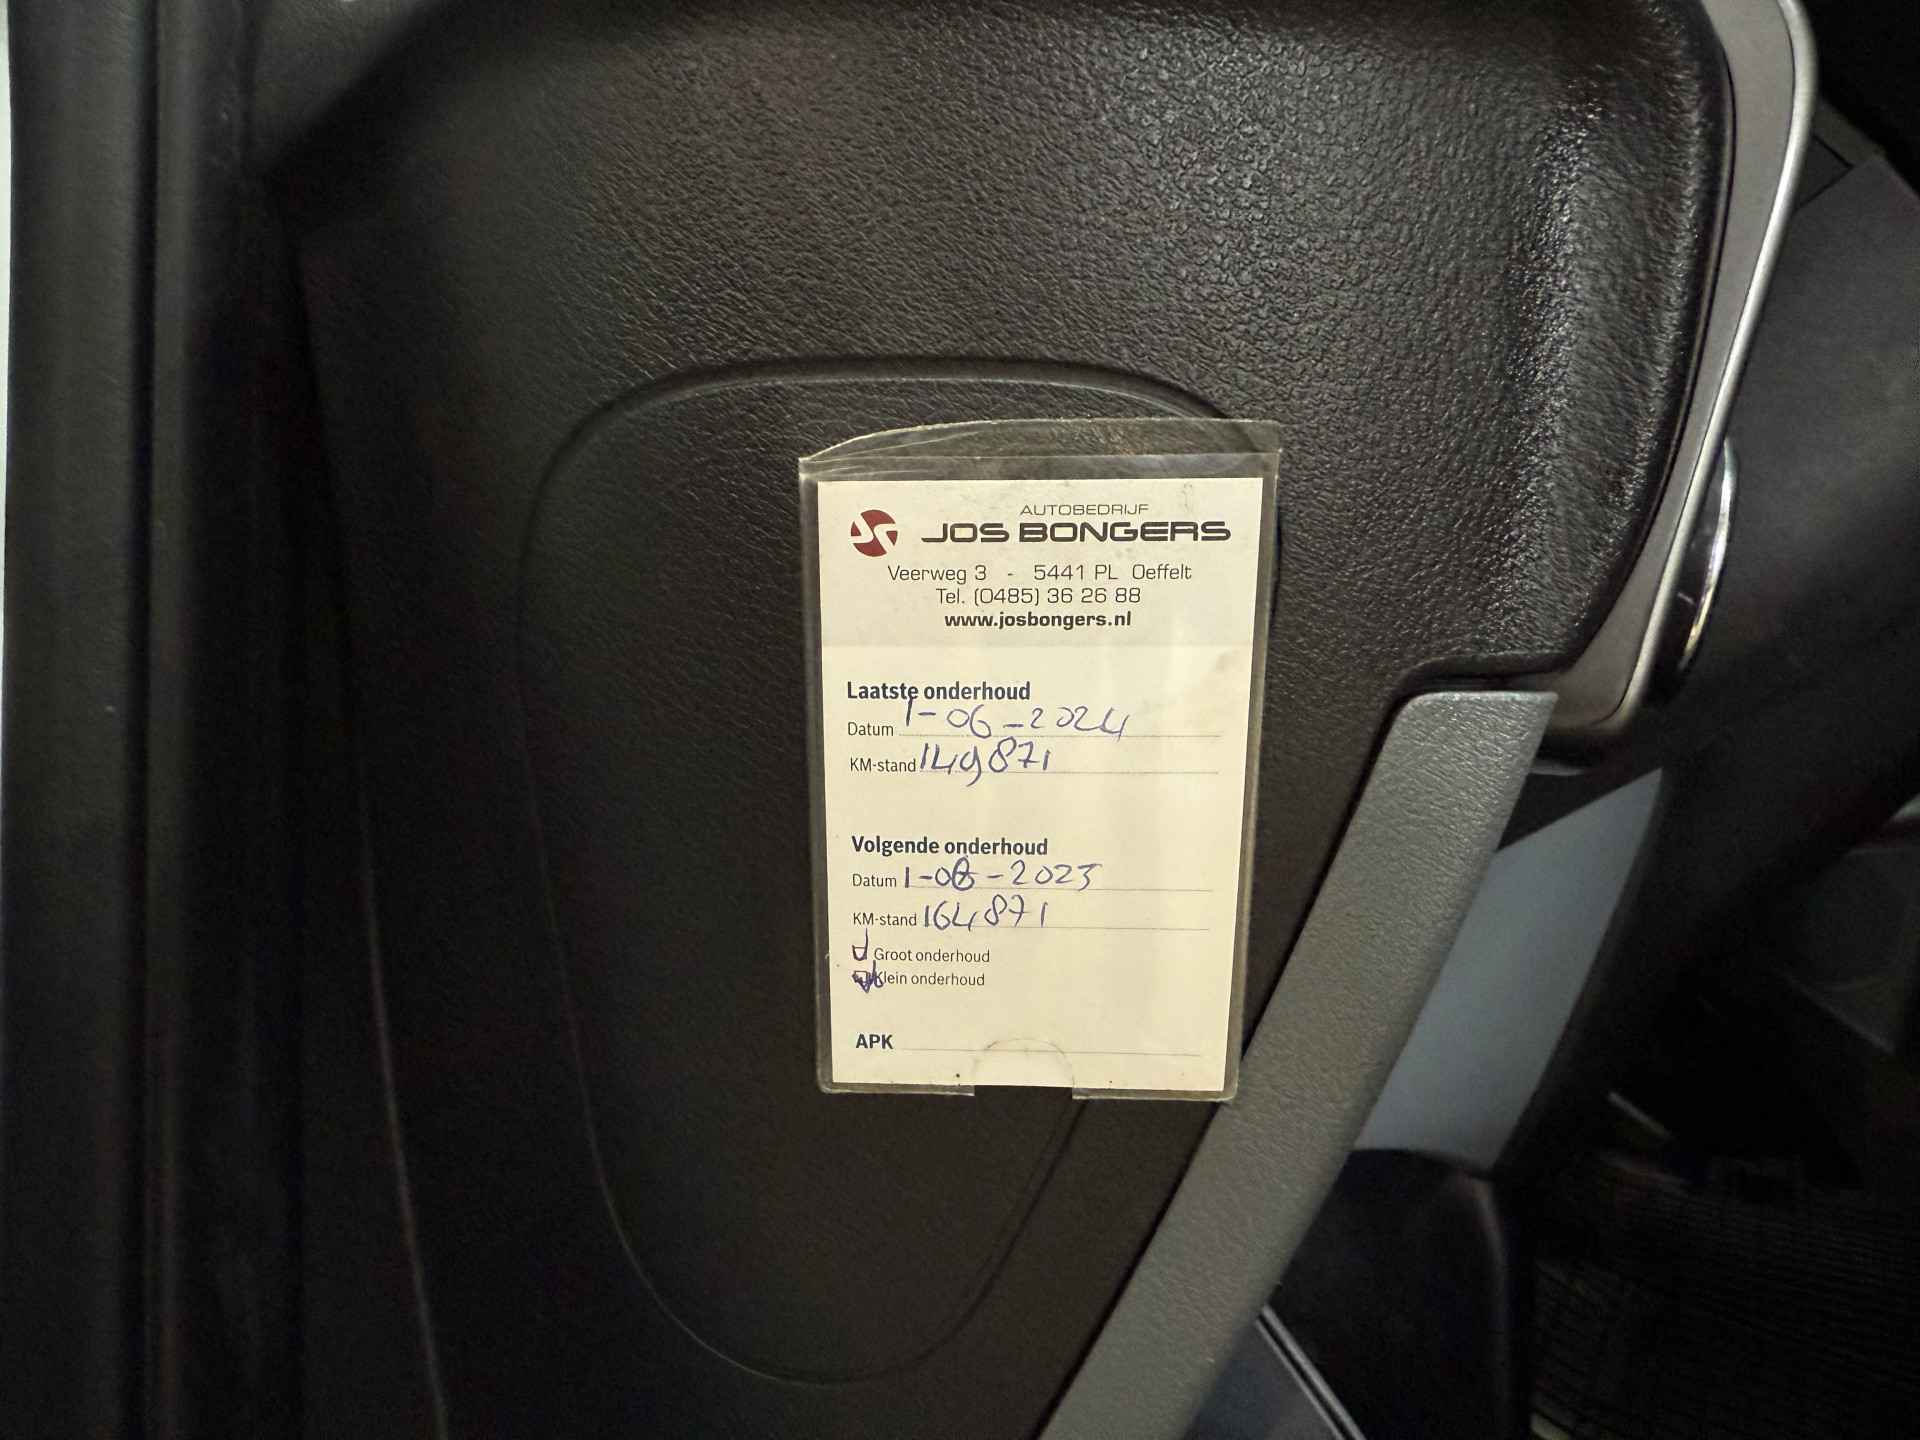 AUTOBEDRIJF
JOS BONGERS
Veerweg 3 - 5441 PL Oeffelt
Tel. (0485) 36 26 88
www.josbongers.nl
Laatste onderhoud
Datum 1-06-2024
KM-stand 149871
Volgende onderhoud
Datum 1-06-2023
KM-stand 164871
Groot onderhoud
Klein onderhoud
APK